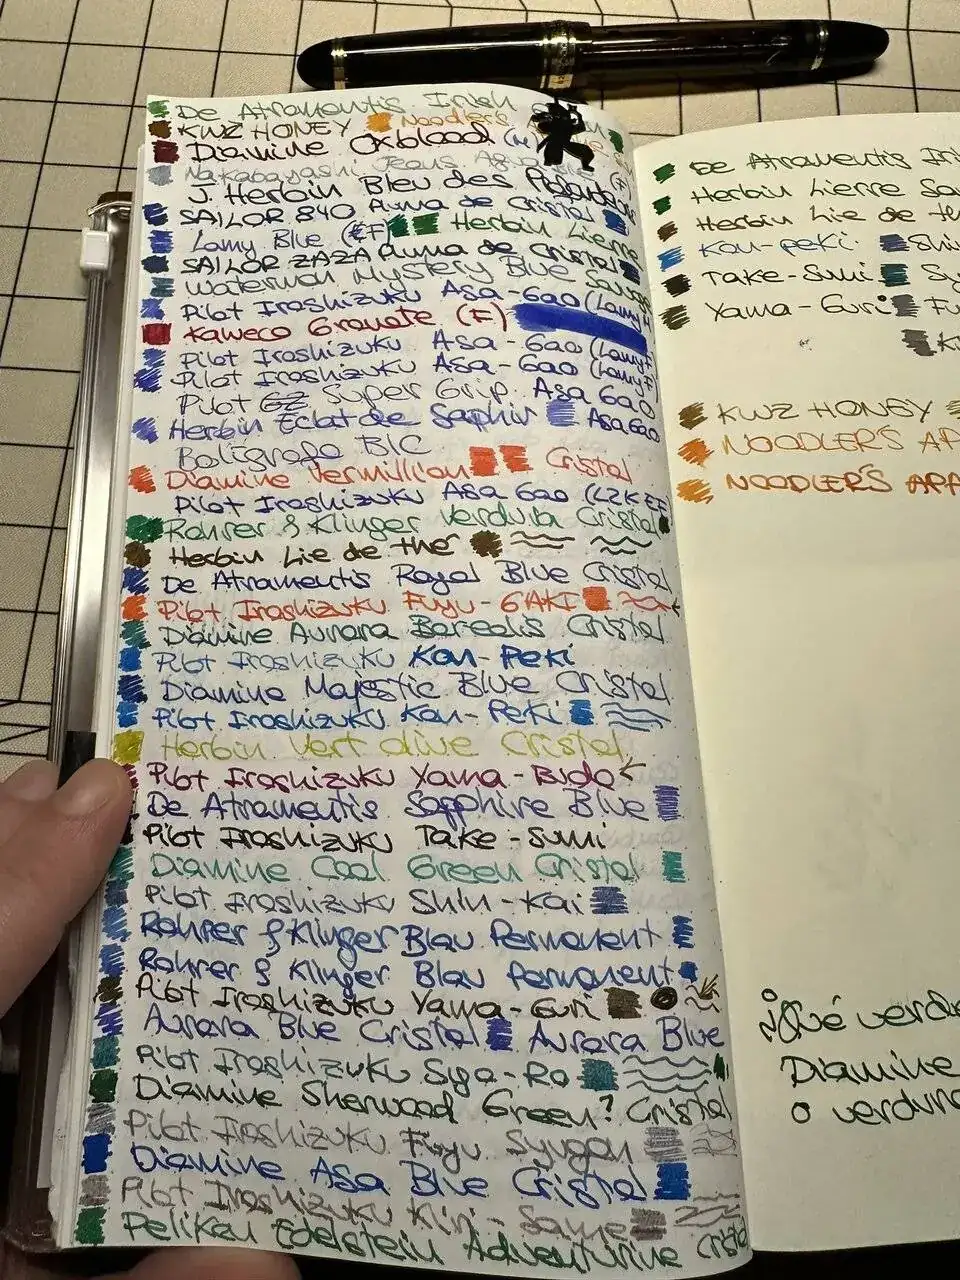 De Atramentis Irish
KWZ HONEY Noodler's
Diamine Oxblood (M)
Nakabayashi Jeans
J. Herbin Bleu des
SAILOR 840 Pluma de Cristal
Lamy Blue (EF) Herbin Lierre
SAILOR ZAZA Pluma de Cristal
Waterman Mystery Blue
Pilot Iroshizuku Asa-Gao (Lamy M
Kaweco Granate (F)
Pilot Iroshizuku Asa-Gao (Lamy F
Pilot Iroshizuku Asa-Gao (Lamy F
Pilot G2 Super Grip Asa Gao
Herbin Eclat de Saphir Asa Gao
Bolígrafo BIC
Diamine Vermillion Cristal
Pilot Iroshizuku Asa Gao (LZK EF
Rohrer & Klinger Verdura Cristal
Herbin Lie de thé
De Atramentis Royal Blue Cristal
Pilot Iroshizuku Fuyu-GAKI
Diamine Aurora Borealis Cristal
Pilot Iroshizuku Kon-Peki
Diamine Majestic Blue Cristal
Pilot Iroshizuku Kon-Peki
Herbin Vert olive Cristal
Pilot Iroshizuku Yama-Budo
De Atramentis Sapphire Blue
Pilot Iroshizuku Take-Sumi
Diamine Cool Green Cristal
Pilot Iroshizuku Shin-Kai
Rohrer & Klinger Blau Permanent
Rohrer & Klinger Blau Permanent
Pilot Iroshizuku Yama-Guri
Aurora Blue Cristal Aurora Blue
Pilot Iroshizuku Syo-Ro
Diamine Sherwood Green? Cristal
Pilot Iroshizuku Fuyu Syogun
Diamine Asa Blue Cristal
Pilot Iroshizuku Kiri-Same
Pelikan Edelstein Adventurine Cristal
De Atramentis Iri
Herbin Lierre Sa
Herbin Lie de th
Kon-peki Shin
Take-Sumi Sy
Yama-Guri Fu
K
KWZ HONEY
NOODLER'S AP
NOODLER'S APA
¿Qué verde
Diamine
o verdura